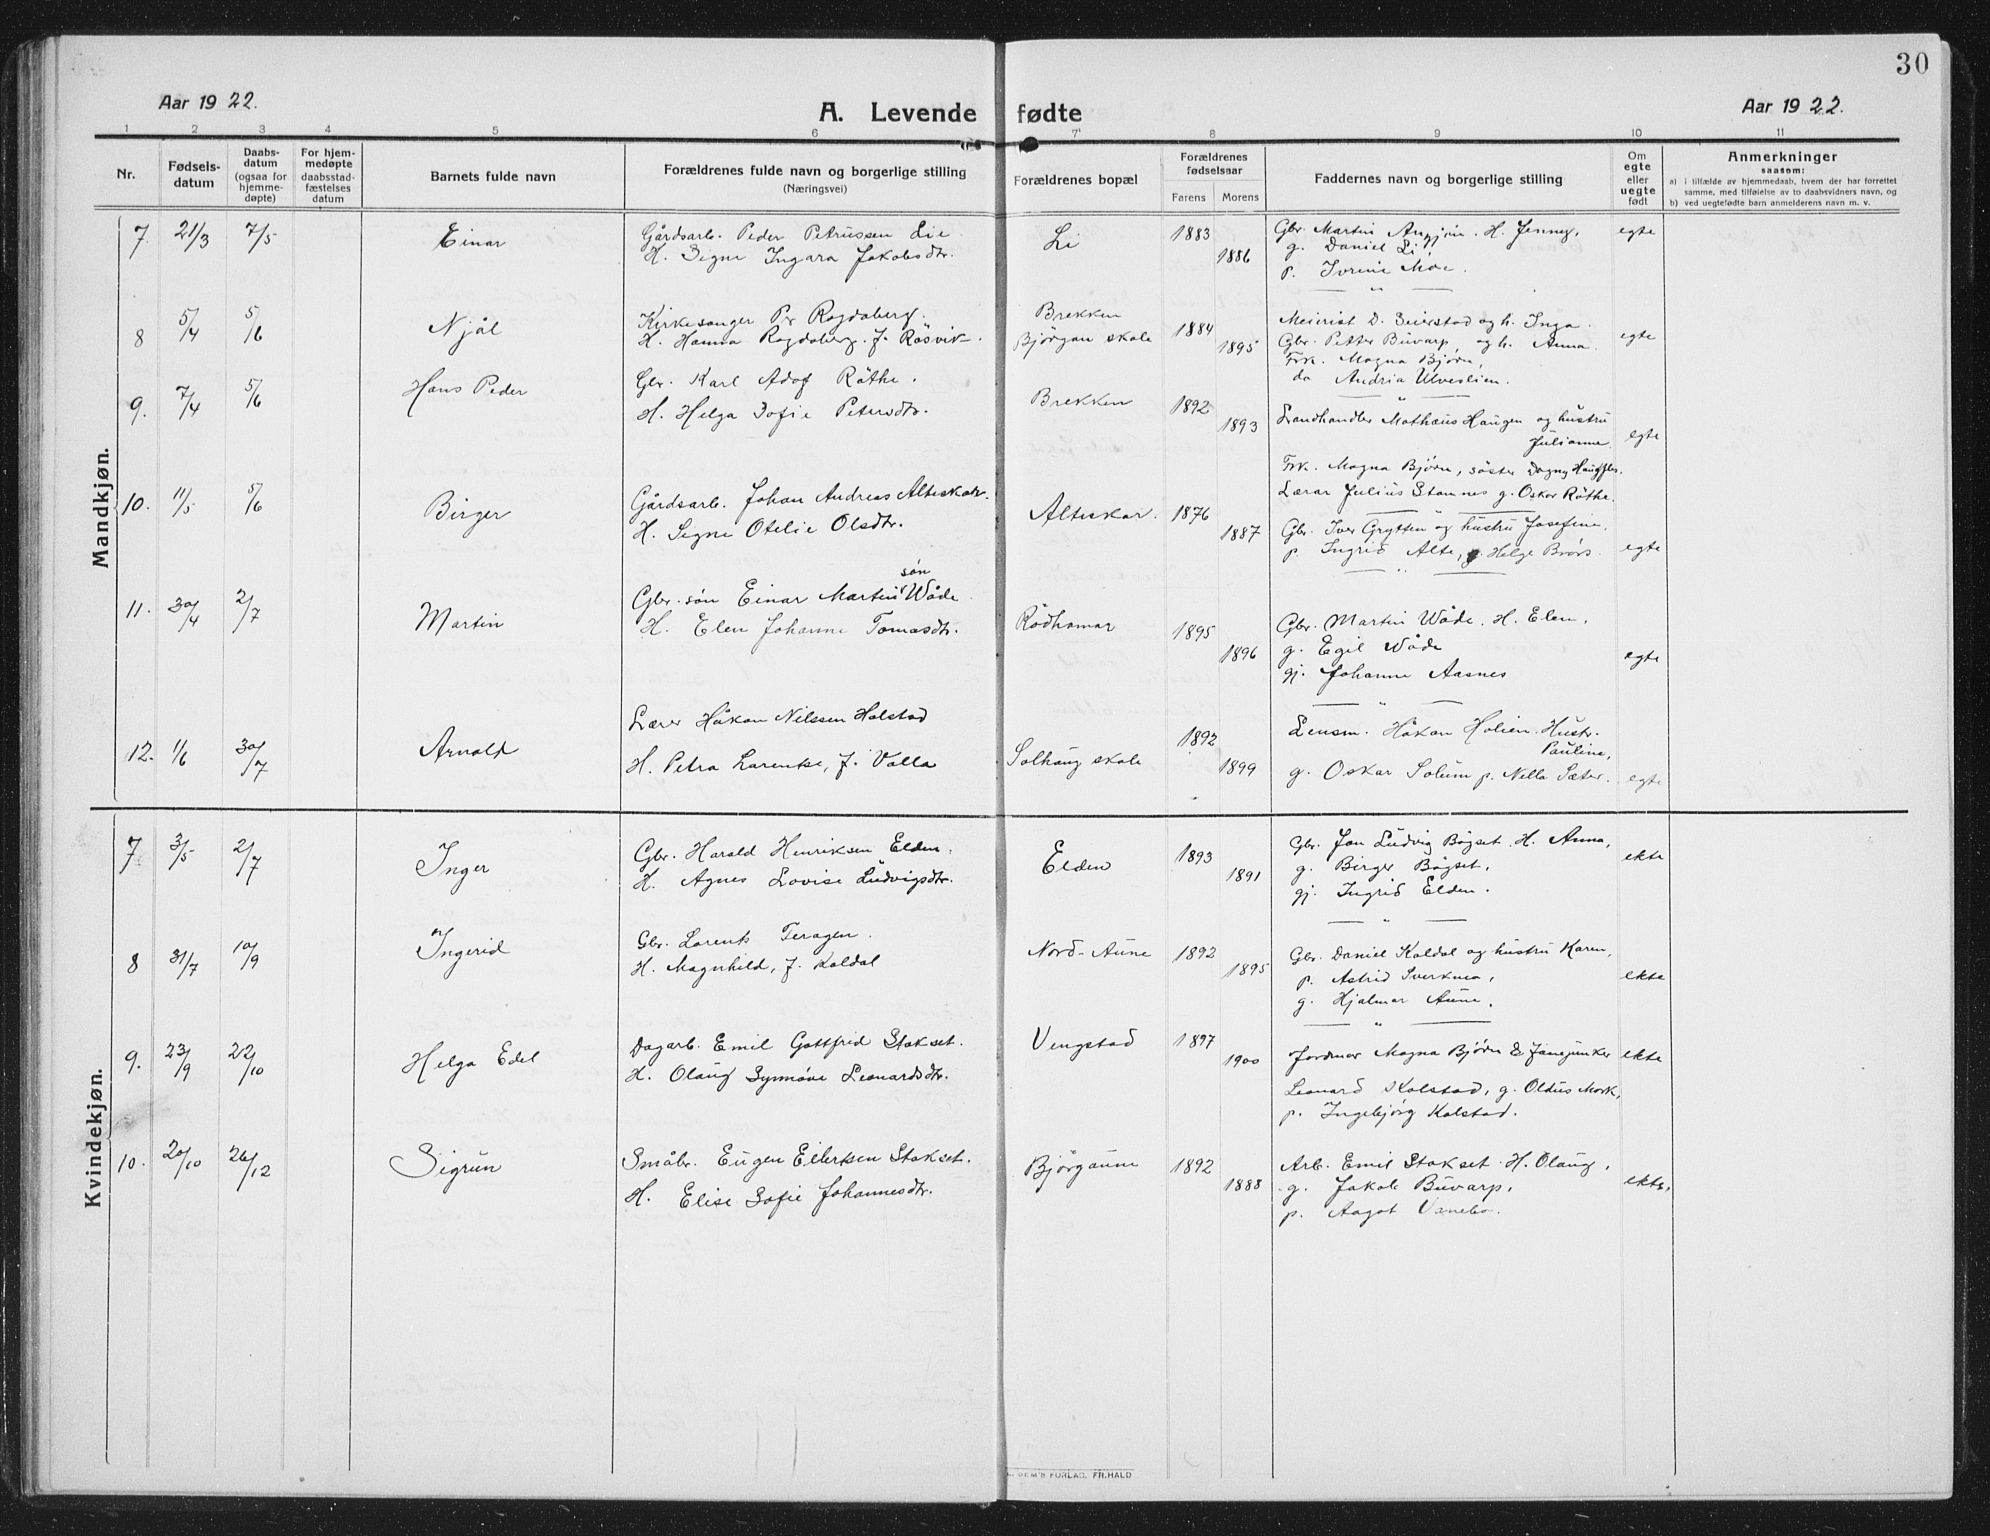 30
Aar 1922.
A. Levende fødte
Aar 1922.
1 2 3 4 5 6 7 8 9 10 11
Nr.
Fødsels-
datum
Daabs-
datum
(ogsaa for
hjemme-
døpte)
For hjem-
medøpte
daabsstad-
fæstelses
datum
Barnets fulde navn
Forældrenes fulde navn og borgerlige stilling
(Næringsvei)
Forældrenes bopæl
Forældrenes
fødselsaar
Farens Morens
Faddernes navn og borgerlige stilling
Om
egte
eller
uegte
født
Anmerkninger
saasom:
a) i tilfælde av hjemmedaab, hvem der har forrettet
samme, med tilføielse av to daabsvidners navn, og
b) ved uegtefødte barn anmelderens navn m. v.
Mandkjøn.
7. 21/3 7/5 Einar
Gårdsarb. Peder Petrussen Lie
H. Signe Ingara Jakobsdtr.
Li 1883 1886
Gbr. Martin H. Jenny,
g. Daniel Li
p. Ivrine Moe.
egte
8 5/4 5/6 Njål
Kirkesanger Per Ragdaberg.
H. Hanna Ragdaberg. f. Røsvik.
Brekken
Björgan skole
1884 1895
Meierist D. Seierstad og h. Inga.
Gbr. Petter Buvarp, og h. Anna.
Frk. Magna Bjørn,
do Andria Ulveslien.
egte
9. 7/4 5/6 Hans Peder
Gbr. Karl Adof Röthe.
H. Helga Sofie Petersdtr.
Brekken 1892 1893
Landhandler Mathæus Haugen og hustru
Julianne.
Frk. Magna Bjørn, søster Dagny
Lærar Julius Stamnes g. Oskar Röthe.
egte
10. 11/5 5/6 Birger
Gårdsarb. Johan Andreas Alteskar.
H. Signe Otelie Olsdtr.
Alteskar. 1876 1887
Gbr. Iver Grytten og hustru Josefine,
p. Ingrid Alte, g. Helge Brørs.
egte
11. 30/4 2/7 Martin
søn
Gbr. søn Einar Martin Wåde.
H. Elen Johanne Tomasdtr.
Rödhamar 1895 1896
Gbr. Martin Wåde. H. Elen,
g. Egil Wåde
gj. Johanne Aasnes
egte
12. 1/6 30/7 Arnold
Lærer Håkon Nilssen Holstad
H. Petra Larentse, f. Valla
Solhaug skole 1892 1899
Lensm. Håkon Holien. Hustr.
Pauline,
g. Oskar Solum p. Nella Sæter.
egte
Kvindekjøn.
7 3/5 2/7 Inger
Gbr. Harald Henriksen Elden.
H. Agnes Lovise Ludvigsdtr.
Elden 1893 1891
Gbr. Jon Ludvig Bögset. H. Anna,
g. Birger Bögset,
gj. Ingrid Elden.
ekte
8 31/7 10/9 Ingerid
Gbr. Lorents Teragen.
H. Magnhild, f. Kaldal
Nord-Aune 1892 1895
Gbr. Daniel Kaldal og hustru Karen,
p. Astrid Sverkmo,
g. Hjalmar Aune.
ekte
9. 23/9 22/10 Helga Edel
Dagarb. Emil Gottfrid Stokset.
H. Olaug Synnøve Leonardsdtr.
Vengstad 1897 1900
Jordmor Magna Bjørn & Fanejunker
Leonard Kolstad, g. Oldus Mork,
p. Ingebjörg Kolstad.
ekte
10. 20/10 26/12 Sigrun
Småbr. Eugen Eilertsen Stokset.
H. Elise Sofie Johannesdtr.
Björgaune 1892 1888
Arb. Emil Stokset. H. Olaug,
g. Jakob Buvarp,
p. Aagot Vanebo.
ekte.
FORLAG, FR. HALD